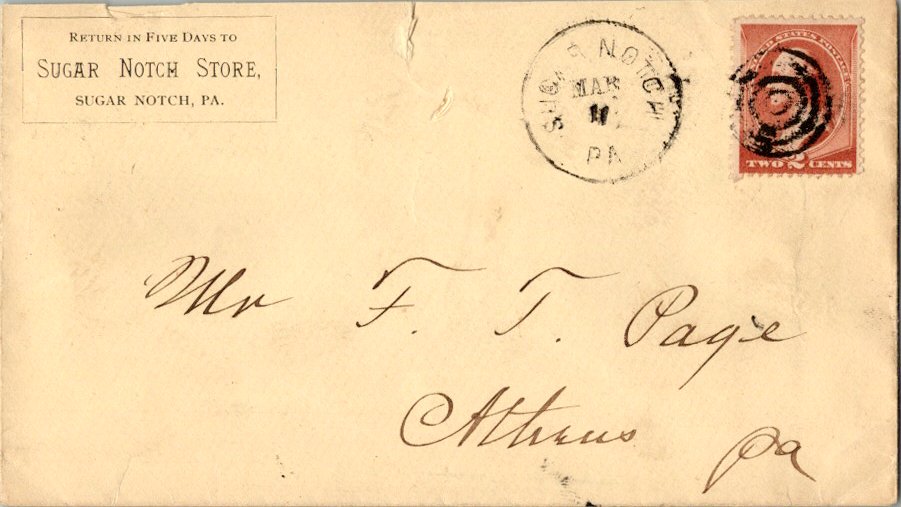 RETURN IN FIVE DAYS TO
SUGAR NOTCH STORE,
SUGAR NOTCH, PA.
SUGAR NOTCH
MAR
PA
UNITED STATES POSTAGE
TWO 2 CENTS
Mr F. T. Page
Athens Pa